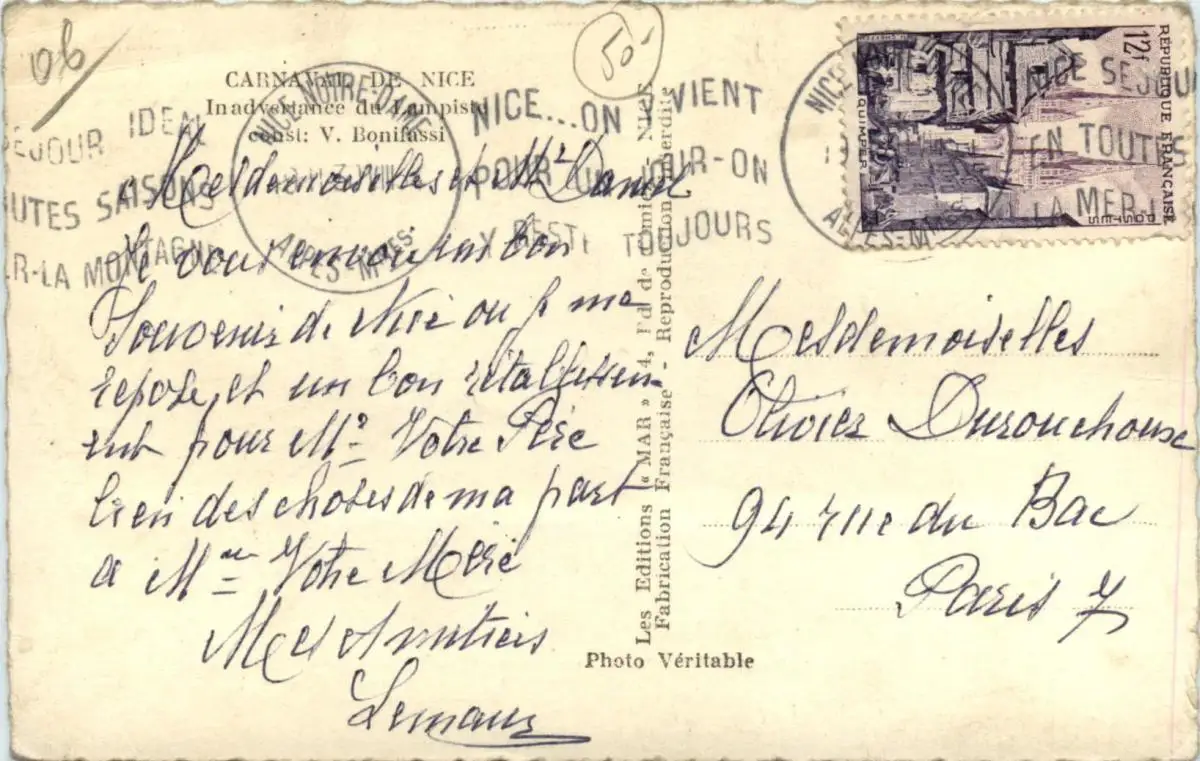 06
50-
CARNAVAL DE NICE
Inadvertance du Lampiste
const: V. Bonifassi
SEJOUR IDEAL
TOUTES SAISONS
MER-LA MONTAGNE
NICE...ON Y VIENT
POUR UN JOUR-ON
Y RESTE TOUJOURS
Mesdemoiselles et Mr
Je vous envoie un bon
Souvenir de Nice ou je me
repose, et un bon rétablissem
ent pour Mr Votre Père
bien des choses de ma part
a Mme Votre Mère
Mes Amitiés
Lemaux
Les Editions « MAR » 4, Bd de Cimiez - NICE
Fabrication Française - Reproduction Interdite
Photo Véritable
12f
REPUBLIQUE FRANÇAISE
POSTES
QUIMPER
NICE
ALPES-MMES
NICE SEJOUR
EN TOUTES
LA MER
Mesdemoiselles
Olivier Durouchoux
94 rue du Bac
Paris 7